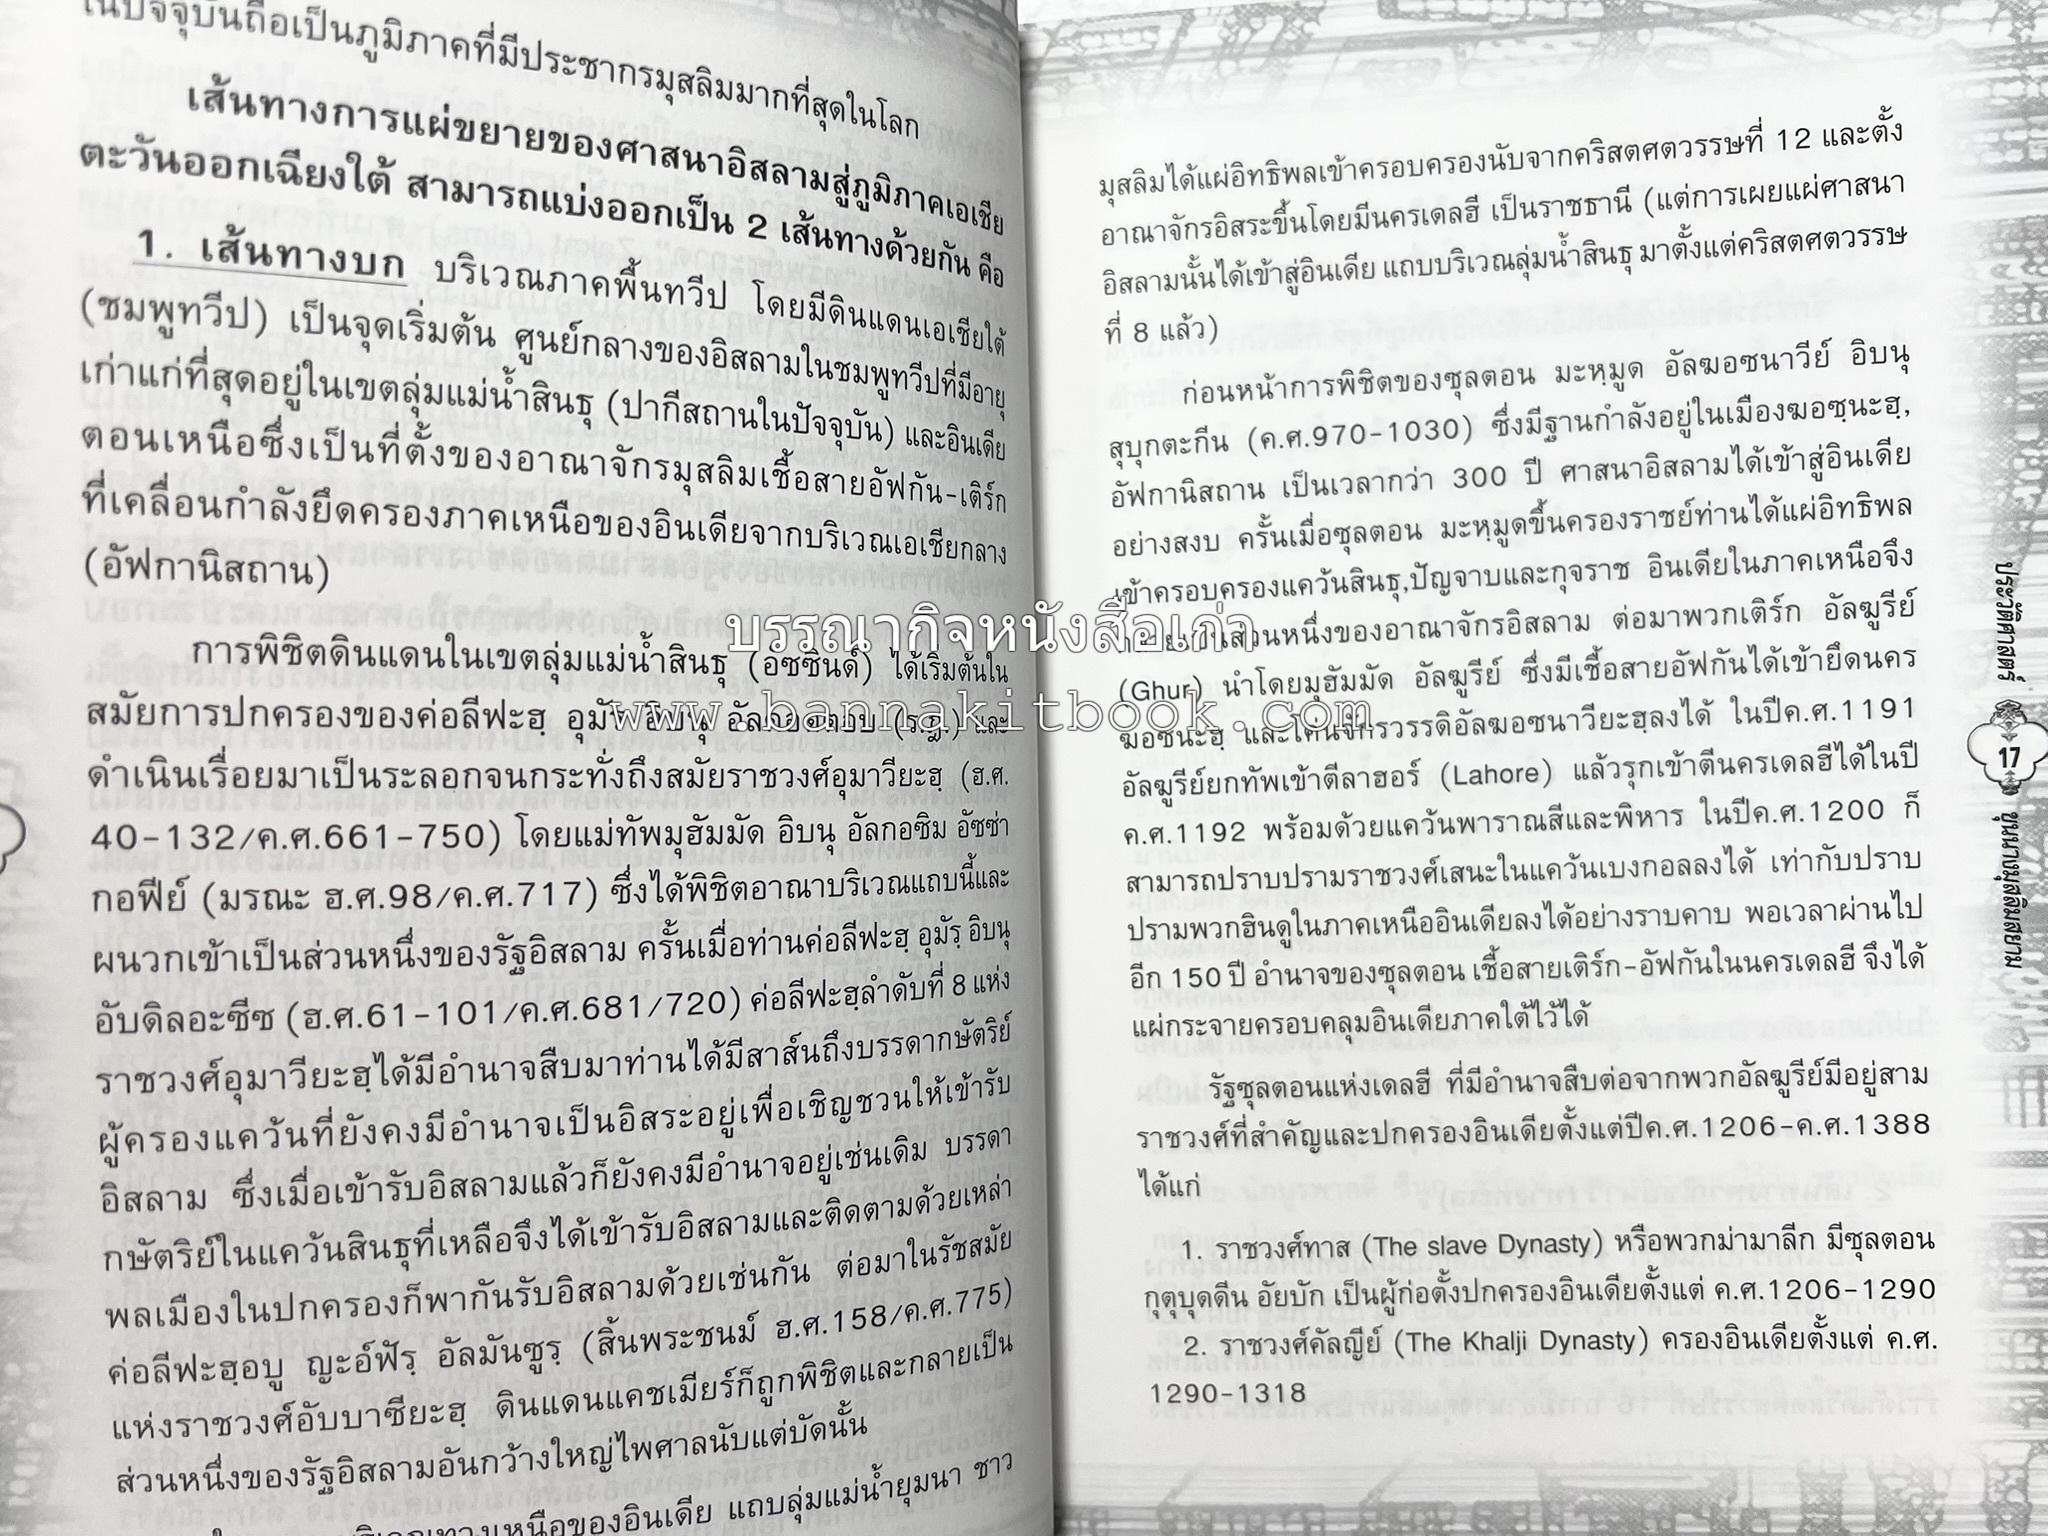 ในปัจจุบันถือเป็นภูมิภาคที่มีประชากรมุสลิมมากที่สุดในโลก
เส้นทางการแผ่ขยายของศาสนาอิสลามสู่ภูมิภาคเอเชีย
ตะวันออกเฉียงใต้ สามารถแบ่งออกเป็น 2 เส้นทางด้วยกัน คือ
1. เส้นทางบก บริเวณภาคพื้นทวีป โดยมีดินแดนเอเชียใต้
(ชมพูทวีป) เป็นจุดเริ่มต้น ศูนย์กลางของอิสลามในชมพูทวีปที่มีอายุ
เก่าแก่ที่สุดอยู่ในเขตลุ่มแม่น้ำสินธุ (ปากีสถานในปัจจุบัน) และอินเดีย
ตอนเหนือซึ่งเป็นที่ตั้งของอาณาจักรมุสลิมเชื้อสายอัฟกัน-เติร์ก
ที่เคลื่อนกำลังยึดครองภาคเหนือของอินเดียจากบริเวณเอเชียกลาง
(อัฟกานิสถาน)
การพิชิตดินแดนในเขตลุ่มแม่น้ำสินธุ (อัซซินด์) ได้เริ่มต้นใน
สมัยการปกครองของค่อลีฟะฮฺ อุมัรฺ อิบนุ อัลคอตตอบ (ร.ฎ.) และ
ดำเนินเรื่อยมาเป็นระลอกจนกระทั่งถึงสมัยราชวงศ์อุมาวียะฮฺ (ฮ.ศ.
40-132/ค.ศ.661-750) โดยแม่ทัพมุฮัมมัด อิบนุ อัลกอซิม อัซซ่า
กอฟีย์ (มรณะ ฮ.ศ.98/ค.ศ.717) ซึ่งได้พิชิตอาณาบริเวณแถบนี้และ
ผนวกเข้าเป็นส่วนหนึ่งของรัฐอิสลาม ครั้นเมื่อท่านค่อลีฟะฮฺ อุมัรฺ อิบนุ
อับดิลอะซีซ (ฮ.ศ.61-101/ค.ศ.681/720) ค่อลีฟะฮฺลำดับที่ 8 แห่ง
ราชวงศ์อุมาวียะฮฺได้มีอำนาจสืบมาท่านได้มีสาส์นถึงบรรดากษัตริย์
ผู้ครองแคว้นที่ยังคงมีอำนาจเป็นอิสระอยู่เพื่อเชิญชวนให้เข้ารับ
อิสลาม ซึ่งเมื่อเข้ารับอิสลามแล้วก็ยังคงมีอำนาจอยู่เช่นเดิม บรรดา
กษัตริย์ในแคว้นสินธุที่เหลือจึงได้เข้ารับอิสลามและติดตามด้วยเหล่า
พลเมืองในปกครองก็พากันรับอิสลามด้วยเช่นกัน ต่อมาในรัชสมัย
ค่อลีฟะฮฺอบู ญะอ์ฟัรฺ อัลมันซูรฺ (สิ้นพระชนม์ ฮ.ศ.158/ค.ศ.775)
แห่งราชวงศ์อับบาซียะฮฺ ดินแดนแคชเมียร์ก็ถูกพิชิตและกลายเป็น
ส่วนหนึ่งของรัฐอิสลามอันกว้างใหญ่ไพศาลนับแต่บัดนั้น
บริเวณทางเหนือของอินเดีย แถบลุ่มแม่น้ำยุมนา ชาว
มุสลิมได้แผ่อิทธิพลเข้าครอบครองนับจากคริสตศตวรรษที่ 12 และตั้ง
อาณาจักรอิสระขึ้นโดยมีนครเดลฮี เป็นราชธานี (แต่การเผยแผ่ศาสนา
อิสลามนั้นได้เข้าสู่อินเดีย แถบบริเวณลุ่มน้ำสินธุ มาตั้งแต่คริสตศตวรรษ
ที่ 8 แล้ว)
ก่อนหน้าการพิชิตของซุลตอน มะหฺมูด อัลฆอซนาวีย์ อิบนุ
สุบุกตะกีน (ค.ศ.970-1030) ซึ่งมีฐานกำลังอยู่ในเมืองฆอซฺนะฮฺ,
อัฟกานิสถาน เป็นเวลากว่า 300 ปี ศาสนาอิสลามได้เข้าสู่อินเดีย
อย่างสงบ ครั้นเมื่อซุลตอน มะหฺมูดขึ้นครองราชย์ท่านได้แผ่อิทธิพล
เข้าครอบครองแคว้นสินธุ,ปัญจาบและกุจราช อินเดียในภาคเหนือจึง
ส่วนหนึ่งของอาณาจักรอิสลาม ต่อมาพวกเติร์ก อัลฆูรีย์
(Ghur) นำโดยมุฮัมมัด อัลฆูรีย์ ซึ่งมีเชื้อสายอัฟกันได้เข้ายึดนคร
ฆอซนะฮฺ และโค่นจักรวรรดิอัลฆอซนาวียะฮฺลงได้ ในปีค.ศ.1191
อัลฆูรีย์ยกทัพเข้าตีลาฮอร์ (Lahore) แล้วรุกเข้าตีนครเดลฮีได้ในปี
ค.ศ.1192 พร้อมด้วยแคว้นพาราณสีและพิหาร ในปีค.ศ.1200 ก็
สามารถปราบปรามราชวงศ์เสนะในแคว้นเบงกอลลงได้ เท่ากับปราบ
ปรามพวกฮินดูในภาคเหนืออินเดียลงได้อย่างราบคาบ พอเวลาผ่านไป
อีก 150 ปี อำนาจของซุลตอน เชื้อสายเติร์ก-อัฟกันในนครเดลฮี จึงได้
แผ่กระจายครอบคลุมอินเดียภาคใต้ไว้ได้
รัฐซุลตอนแห่งเดลฮี ที่มีอำนาจสืบต่อจากพวกอัลฆูรีย์มีอยู่สาม
ราชวงศ์ที่สำคัญและปกครองอินเดียตั้งแต่ปีค.ศ.1206-ค.ศ.1388
ได้แก่
1. ราชวงศ์ทาส (The slave Dynasty) หรือพวกม่ามาลีก มีซุลตอน
กุตุบุดดีน อัยบัก เป็นผู้ก่อตั้งปกครองอินเดียตั้งแต่ ค.ศ.1206-1290
2. ราชวงศ์คัลญีย์ (The Khalji Dynasty) ครองอินเดียตั้งแต่ ค.ศ.
1290-1318
ประวัติศาสตร์
17
ขุนนางมุสลิมสยาม
บรรณากิจหนังสือเก่า
www.bannakitbook.com